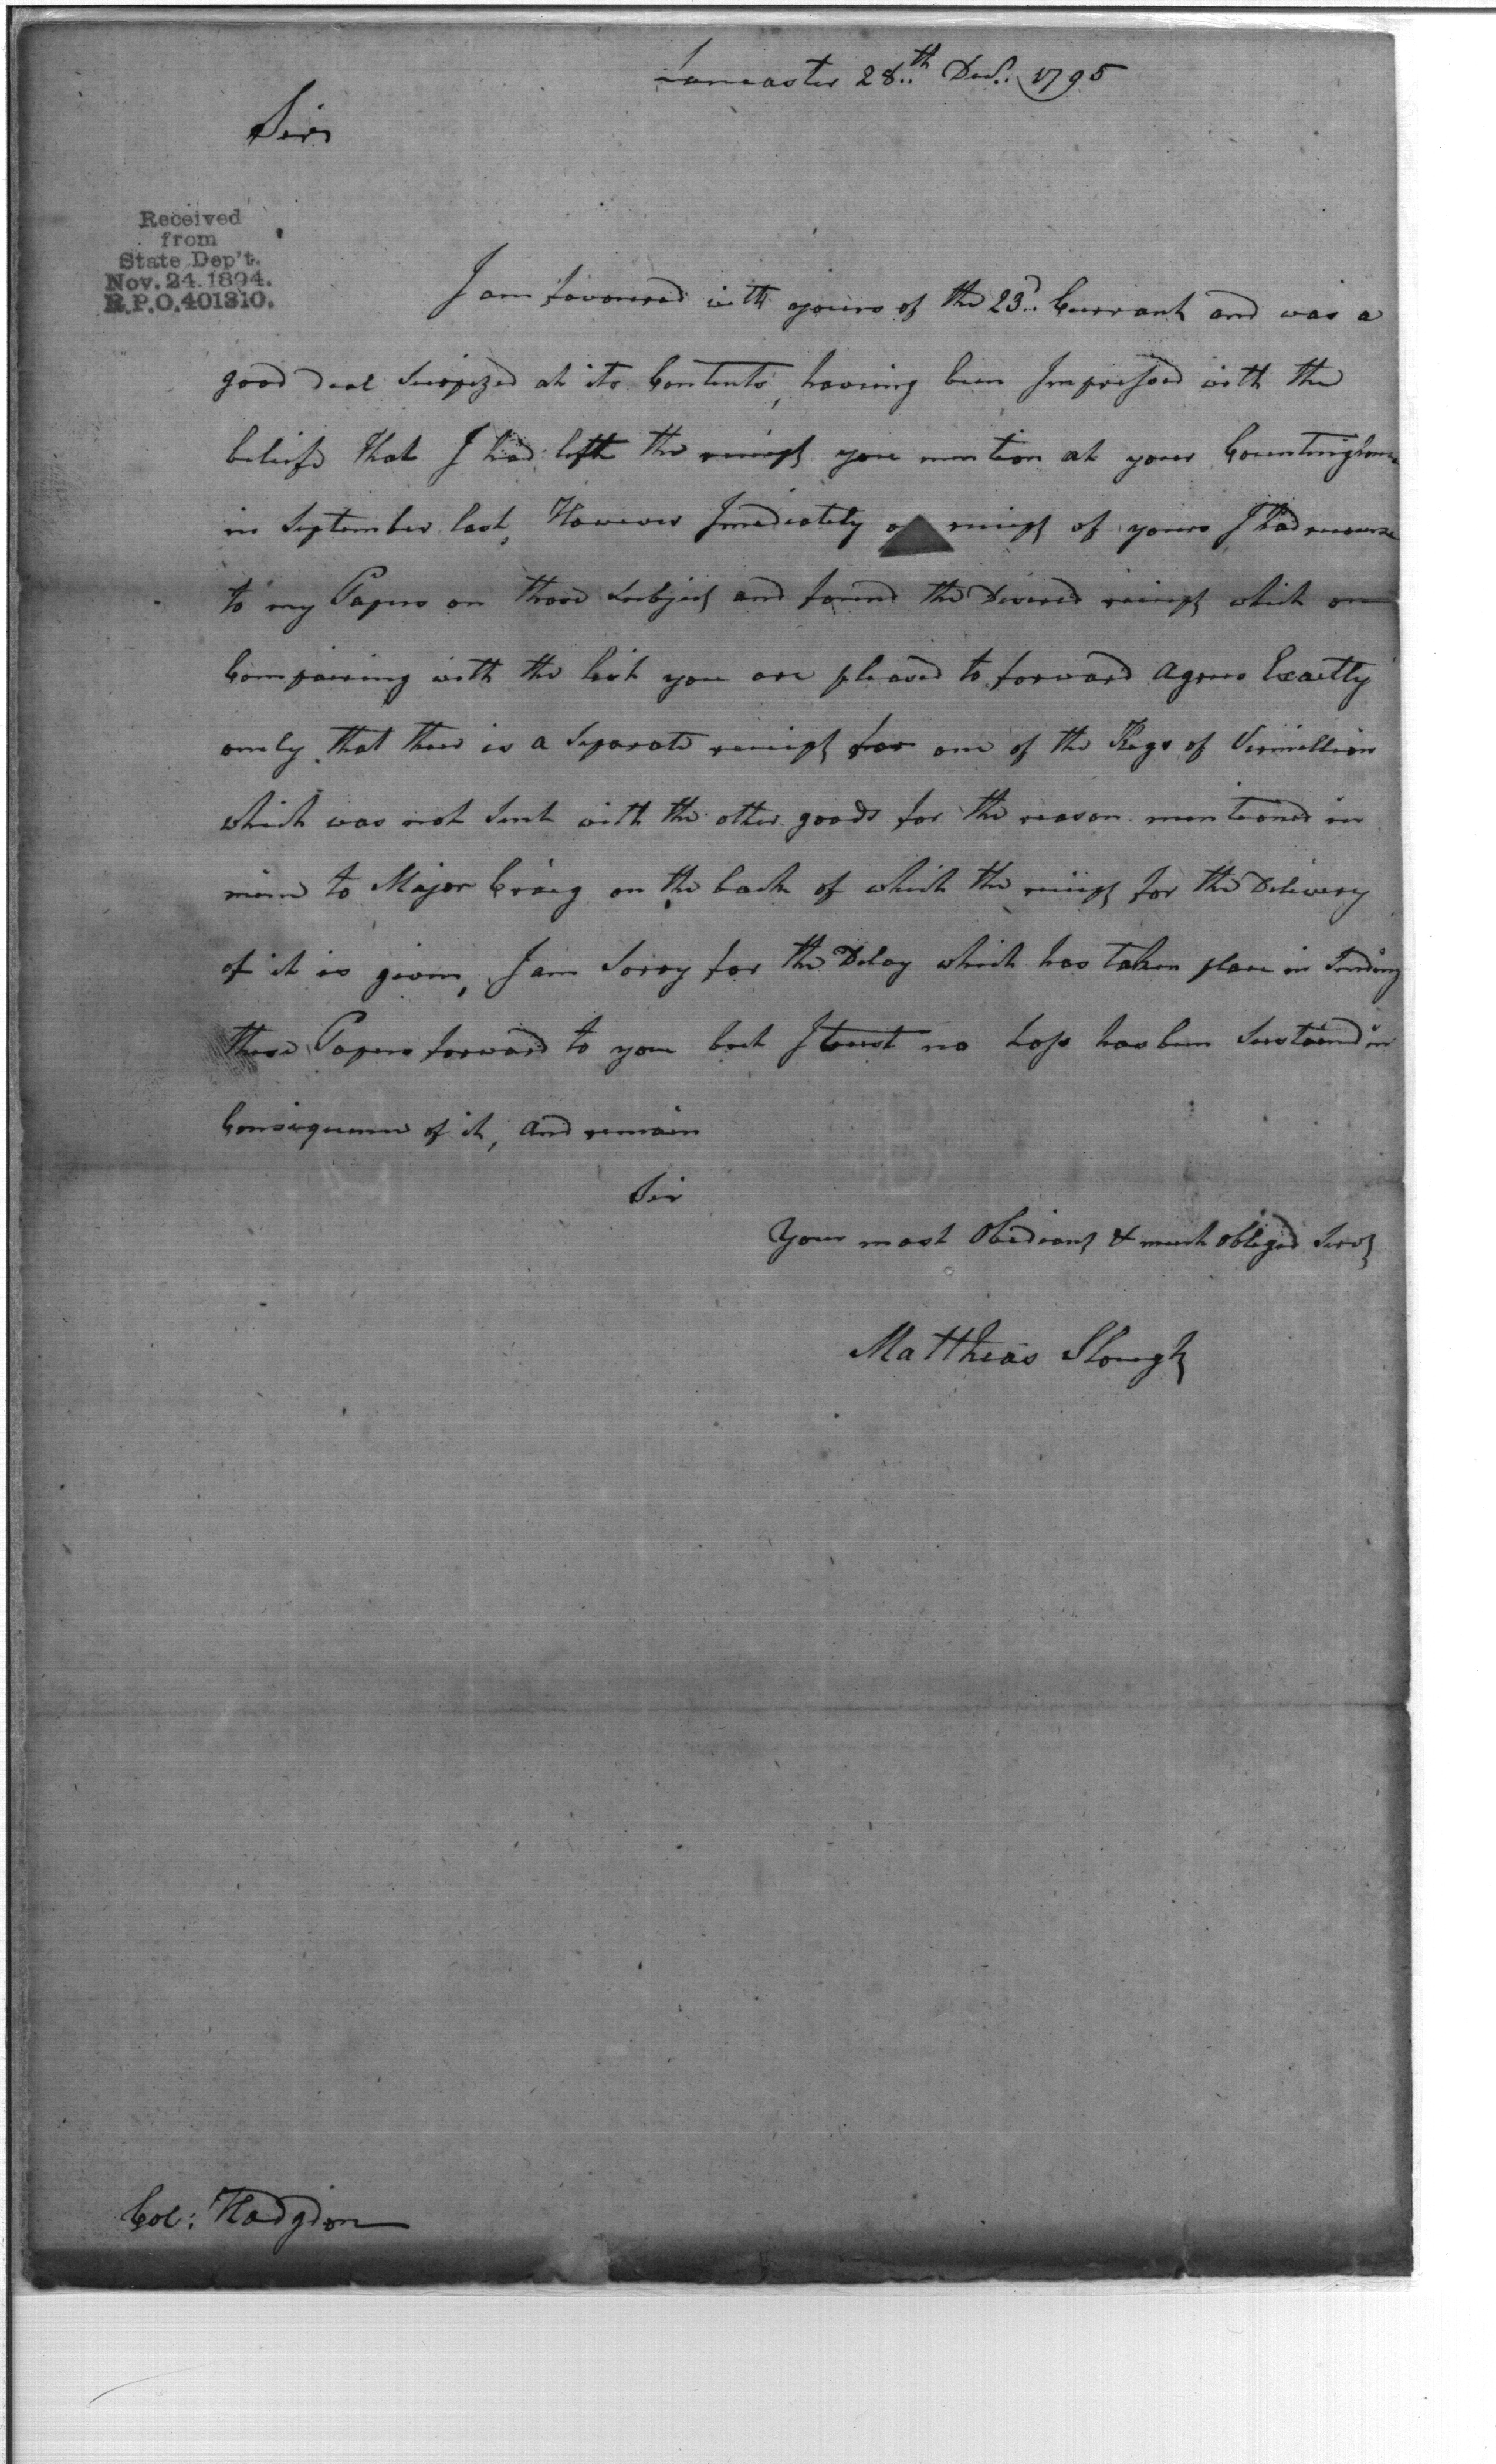 Lancaster 28th Decr. 1795
Sir
Received
from
State Dep't.
Nov. 24. 1894.
R.P.O. 401310.
I am favoured with yours of the 23d. Currant and was a
good deal Surpized at its Contents, having been Impressed with the
beliefe that I had left the receipt you mention at your Countinghouse
in September last, However Imediately receipt of yours I had recourse
to my Papers on those Subject and found the Desired receipt which on
Compairing with the list you are pleased to forward agrees Exactly
onely that there is a Separate receipt for one of the Kegs of Vermillion
which was not Sent with the other goods for the reason mentioned in
mine to Major Craig on the back of which the receipt for the Delivery
of it is given, I am Sorry for the Delay which has taken place in Sending
these Papers forward to you but I trust no Loss has been Sustaind in
Consequence of it, and remain
Sir
Your most Obediant & much obliged Servt
Matthias Slough
Col: Hodgdon